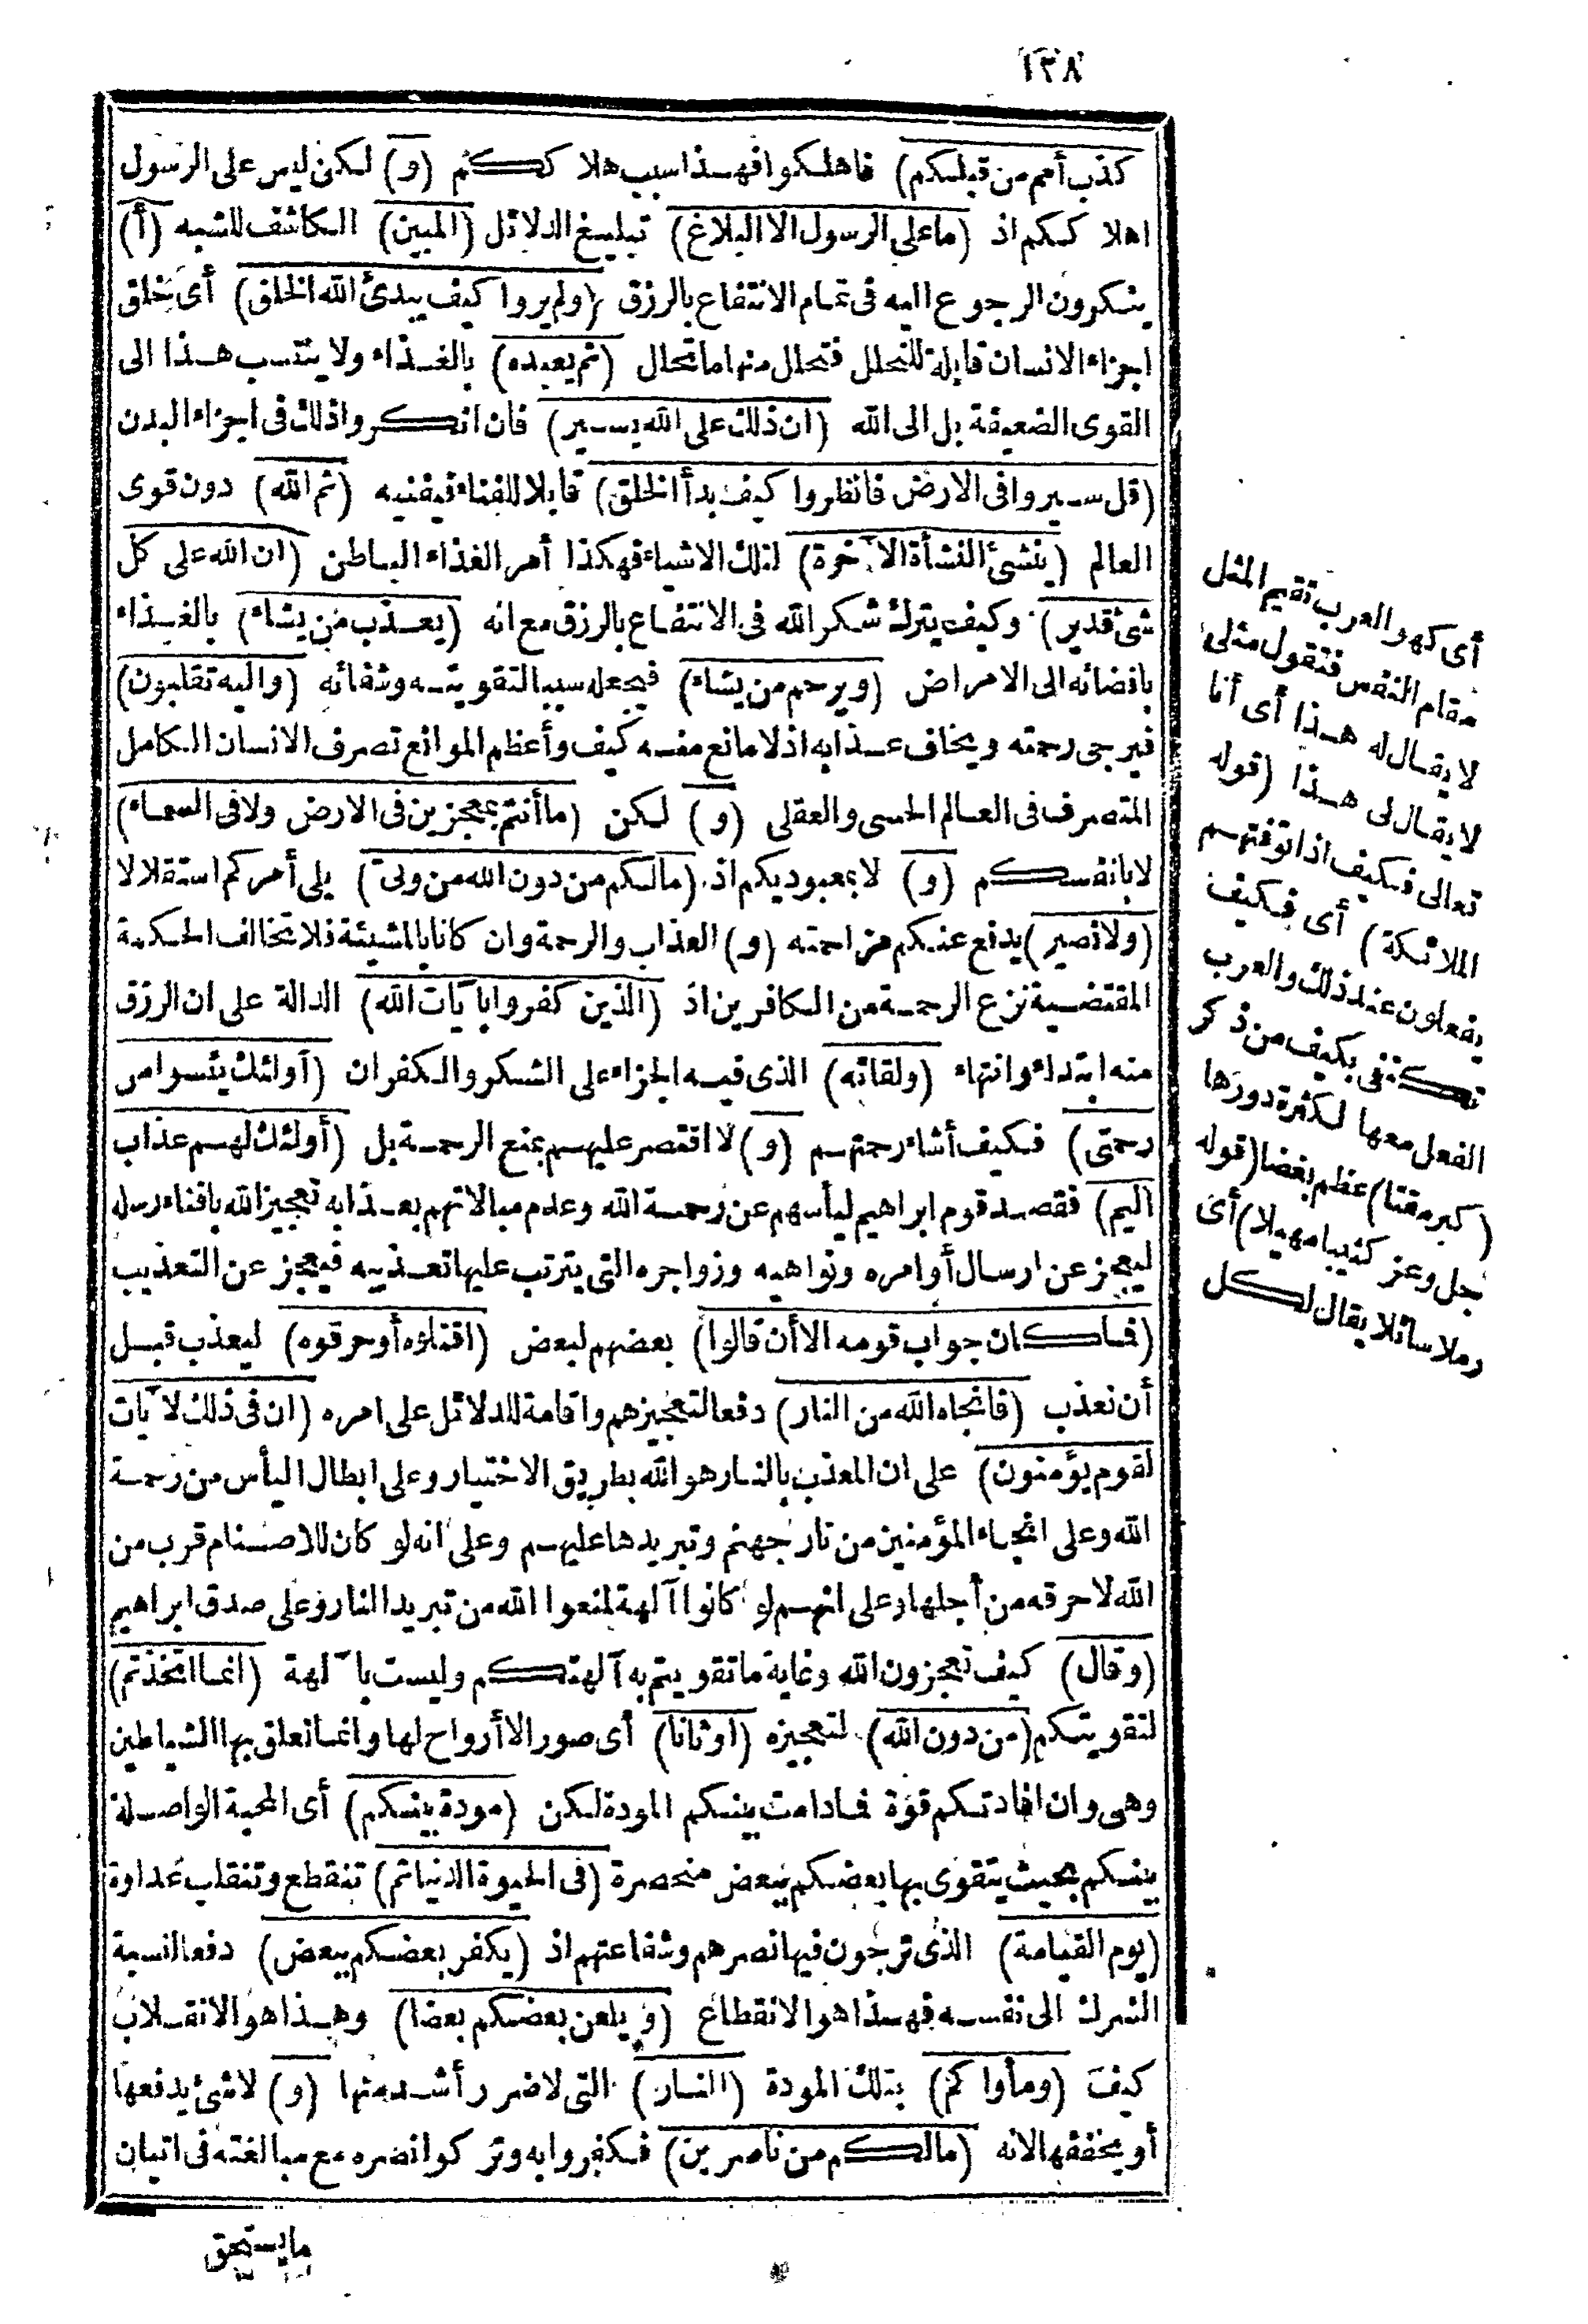 ١٣٨
كذب أمم من قبلكم) فاهلكوا فهذا سبب هلاككم (و) لكن ليس على الرسول
اهلاككم اذ (ما على الرسول الا البلاغ) تبليغ الدلائل (المبين) الكاشف للشبه (أ)
ينكرون الرجوع اليه فى تمام الانتفاع بالرزق (ولم يروا كيف يبدئ الله الخلق) أى يخلق
اجزاء الانسان قابلة للتحلل فتحلل منها ما تحال (ثم يعيده) بالغذاء ولا ينتسب هذا الى
القوى الضعيفة بل الى الله (ان ذلك على الله يسير) فان انكروا ذلك فى اجزاء البدن
(قل سيروا فى الارض فانظروا كيف بدأ الخلق) قابلا للفناء فيفنيه (ثم الله) دون قوى
العالم (ينشئ النشأة الآخرة) لتلك الاشياء فهكذا أمر الغذاء الباطن (ان الله على كل
شئ قدير) وكيف يترك شكر الله فى الانتفاع بالرزق مع انه (يعذب من يشاء) بالغذاء
بافضائه الى الامراض (ويرحم من يشاء) فيجعله سببا لتقويته وشفائه (واليه تقلبون)
فيرجى رحمته ويخاف عذابه اذ لا مانع منه كيف وأعظم الموانع تصرف الانسان الكامل
المتصرف فى العالم الحسى والعقلى (و) لكن (ما أنتم بمعجزين فى الارض ولا فى السماء)
لا بانفسكم (و) لا بمعبوديكم اذ (مالكم من دون الله من ولىّ) يلى أمركم استقلالا
(ولا نصير) يدفع عنكم مزاحمته (و) العذاب والرحمة وان كانا بالمشيئة فلا تخالف الحكمة
المقتضية نزع الرحمة من الكافرين اذ (الذين كفروا بآيات الله) الدالة على ان الرزق
منه ابتداء وانتهاء (ولقائه) الذى فيه الجزاء على الشكر والكفران (أولئك يئسوا من
رحمتى) فكيف أشاء رحمتهم (و) لا اقتصر عليهم بمنع الرحمة بل (أولئك لهم عذاب
أليم) فقصد قوم ابراهيم ليأسهم عن رحمة الله وعدم مبالاتهم بعذابه تعجيز الله بافناء رسله
ليعجز عن ارسال أوامره ونواهيه وزواجره التى يترتب عليها تعذيبه فيعجز عن التعذيب
(فما كان جواب قومه الا أن قالوا) بعضهم لبعض (اقتلوه أو حرقوه) ليعذب قبل
أن نعذب (فانجاه الله من النار) دفعا لتعجيزهم واقامة للدلائل على امره (ان فى ذلك لآيات
لقوم يؤمنون) على ان المعذب بالنار هو الله بطريق الاختيار وعلى ابطال اليأس من رحمة
الله وعلى انجاء المؤمنين من نار جهنم وتبريدها عليهم وعلى انه لو كان للاصنام قرب من
الله لاحرقه من أجلها وعلى انهم لو كانوا آلهة لمنعوا الله من تبريد النار وعلى صدق ابراهيم
(وقال) كيف تعجزون الله وغاية ما تقويتم به آلهتكم وليست بآلهة (انما اتخذتم)
لتقويتكم (من دون الله) لتعجيزه (اوثانا) أى صور الا أرواح لها وانما تعلق بها الشياطين
وهى وان افادتكم قوة فما دامت بينكم المودة لكن (مودة بينكم) أى المحبة الواصلة
بينكم بحيث يتقوى بها بعضكم ببعض منحصرة (فى الحيوة الدنيا ثم) تنقطع وتنقلب عداوة
(يوم القيامة) الذى ترجون فيها نصرهم وشفاعتهم اذ (يكفر بعضكم ببعض) دفعا لنسبة
الشرك الى نفسه فهذا هو الانقطاع (ويلعن بعضكم بعضا) وهذا هو الانقلاب
كيف (ومأواكم) بتلك المودة (النار) التى لا ضرر أشد منها (و) لا شئ يدفعها
أو يخففها لانه (مالكم من ناصرين) فكفروا به وتركوا نصره مع مبالغته فى اتيان
ما يستحق
أى كهو والعرب تقيم المثل
مقام النفس فتقول مثلى
لا يقال له هذا أى أنا
لا يقال لى هذا (قوله
تعالى فكيف اذا توفتهم
الملائكة) أى فكيف
يفعلون عند ذلك والعرب
تكتفى بكيف من ذكر
الفعل معها لكثرة دورها
(كبر مقتا) عظم بغضا (قوله
جل وعز كثيبا مهيلا) أى
رملا سائلا يقال لكل